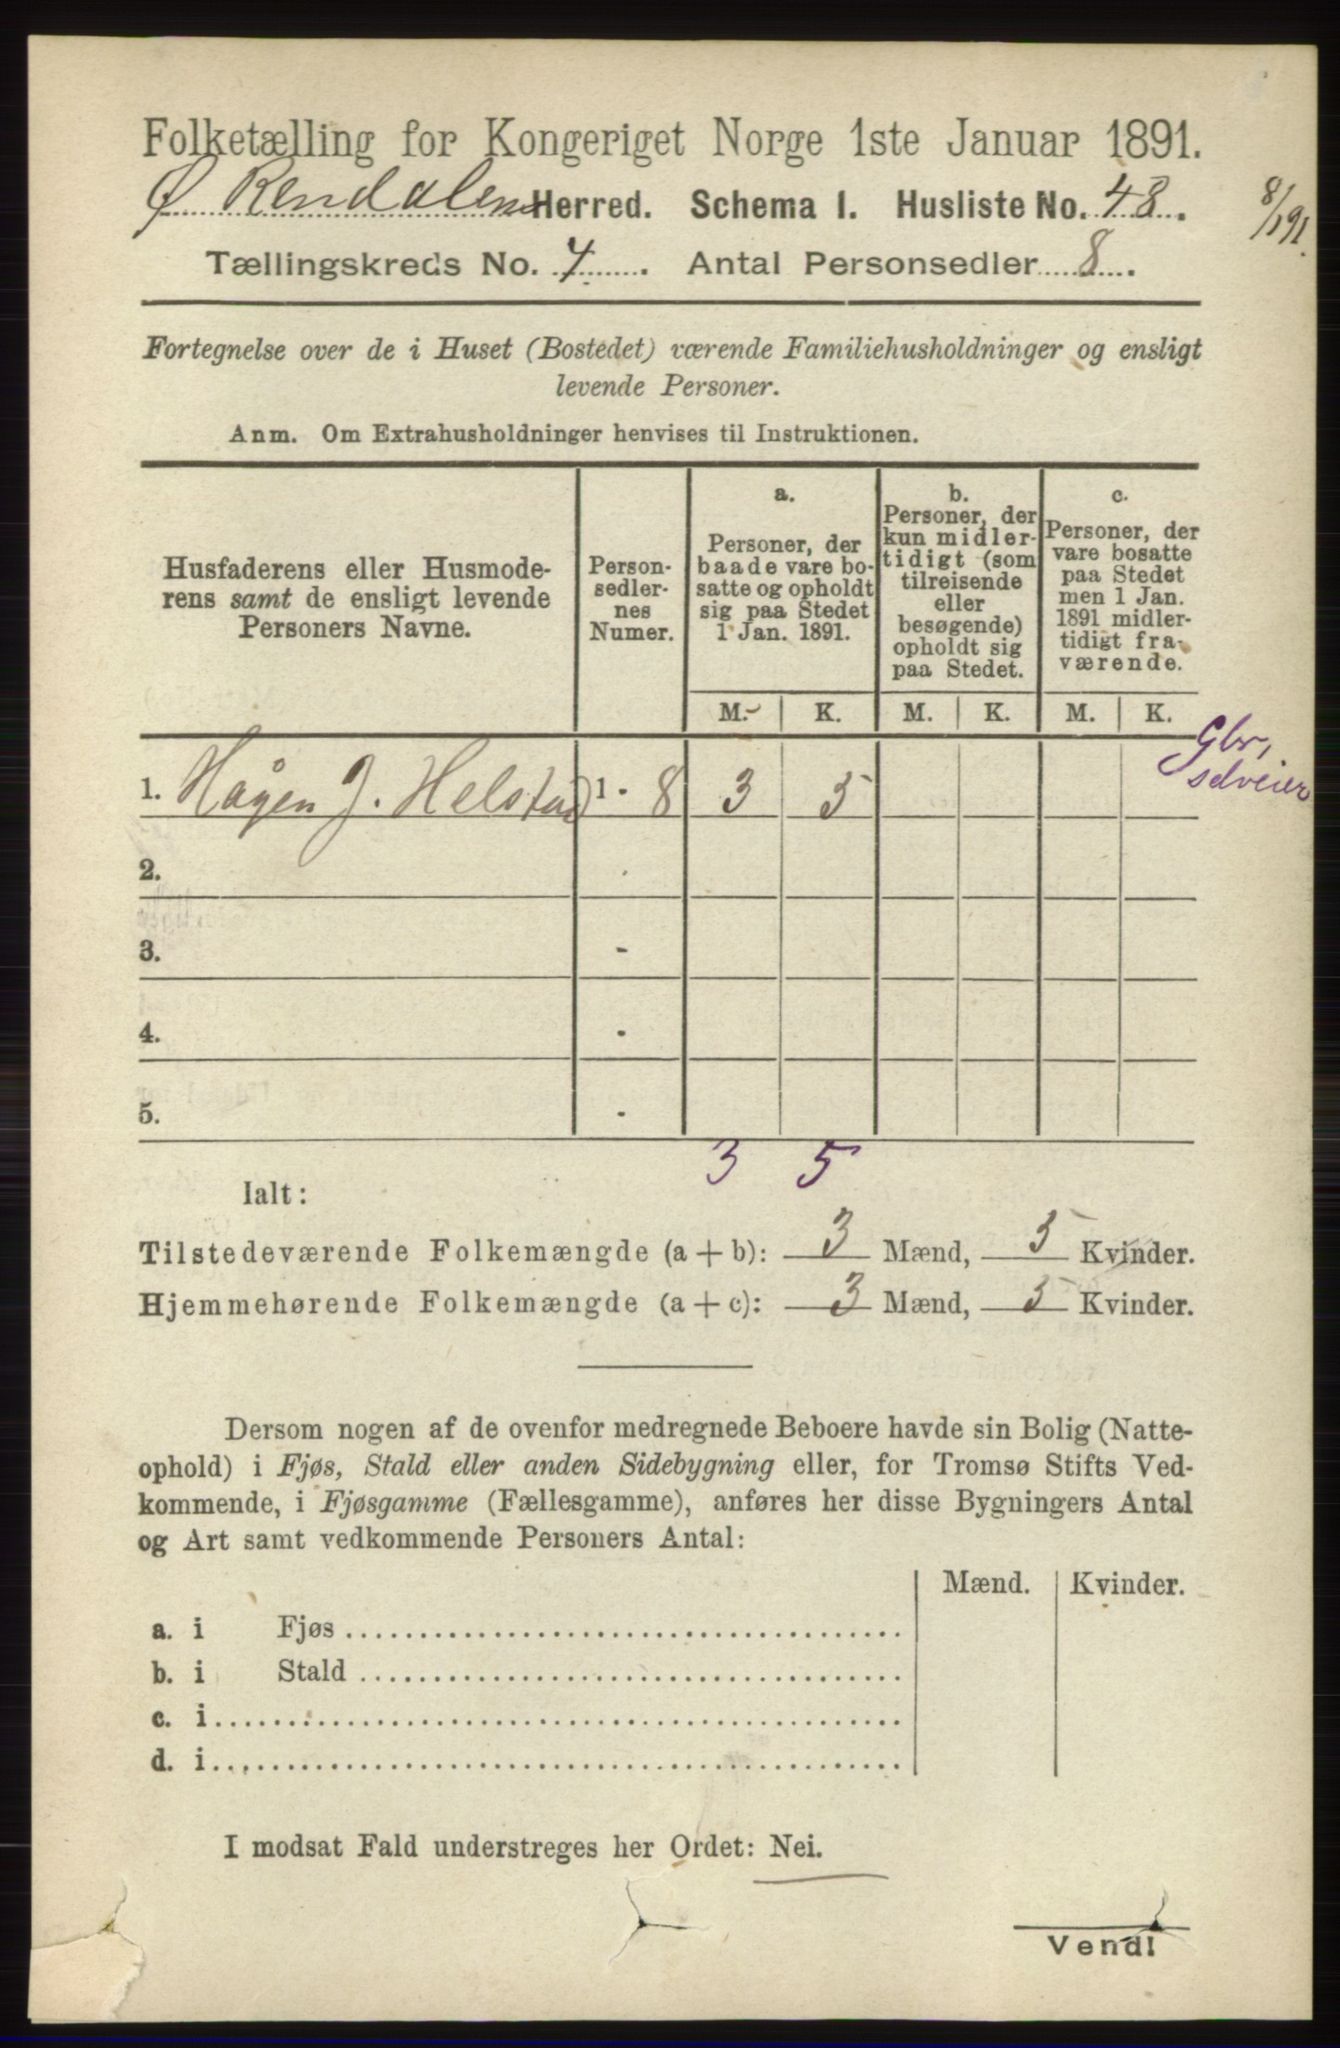 Folketælling for Kongeriget Norge 1ste Januar 1891.
Ø Rendalens Herred. Schema I. Husliste No. 48.
8/1 91.
Tællingskreds No. 4. Antal Personsedler 8.
Fortegnelse over de i Huset (Bostedet) værende Familiehusholdninger og ensligt
levende Personer.
Anm. Om Extrahusholdninger henvises til Instruktionen.
Husfaderens eller Husmode-
rens samt de ensligt levende
Personers Navne.
Person-
sedler-
nes
Numer.
a.
Personer, der
baade vare bo-
satte og opholdt
sig paa Stedet
1 Jan. 1891.
b.
Personer, der
kun midler-
tidigt (som
tilreisende
eller
besøgende)
opholdt sig
paa Stedet.
c.
Personer, der
vare bosatte
paa Stedet
men 1 Jan.
1891 midler-
tidigt fra-
værende.
M. K. M. K. M. K.
1. Hågen J. Helstad 1 - 8 3 5
Gbr,
selveier
2. -
3. -
4. -
5. -
3 5
Ialt:
Tilstedeværende Folkemængde (a + b): 3 Mænd, 5 Kvinder.
Hjemmehørende Folkemængde (a + c): 3 Mænd, 5 Kvinder.
Dersom nogen af de ovenfor medregnede Beboere havde sin Bolig (Natte-
ophold) i Fjøs, Stald eller anden Sidebygning eller, for Tromsø Stifts Ved-
kommende, i Fjøsgamme (Fællesgamme), anføres her disse Bygningers Antal
og Art samt vedkommende Personers Antal:
Mænd. Kvinder.
a. i Fjøs
b. i Stald
c. i
d. i
I modsat Fald understreges her Ordet: Nei.
Vend!